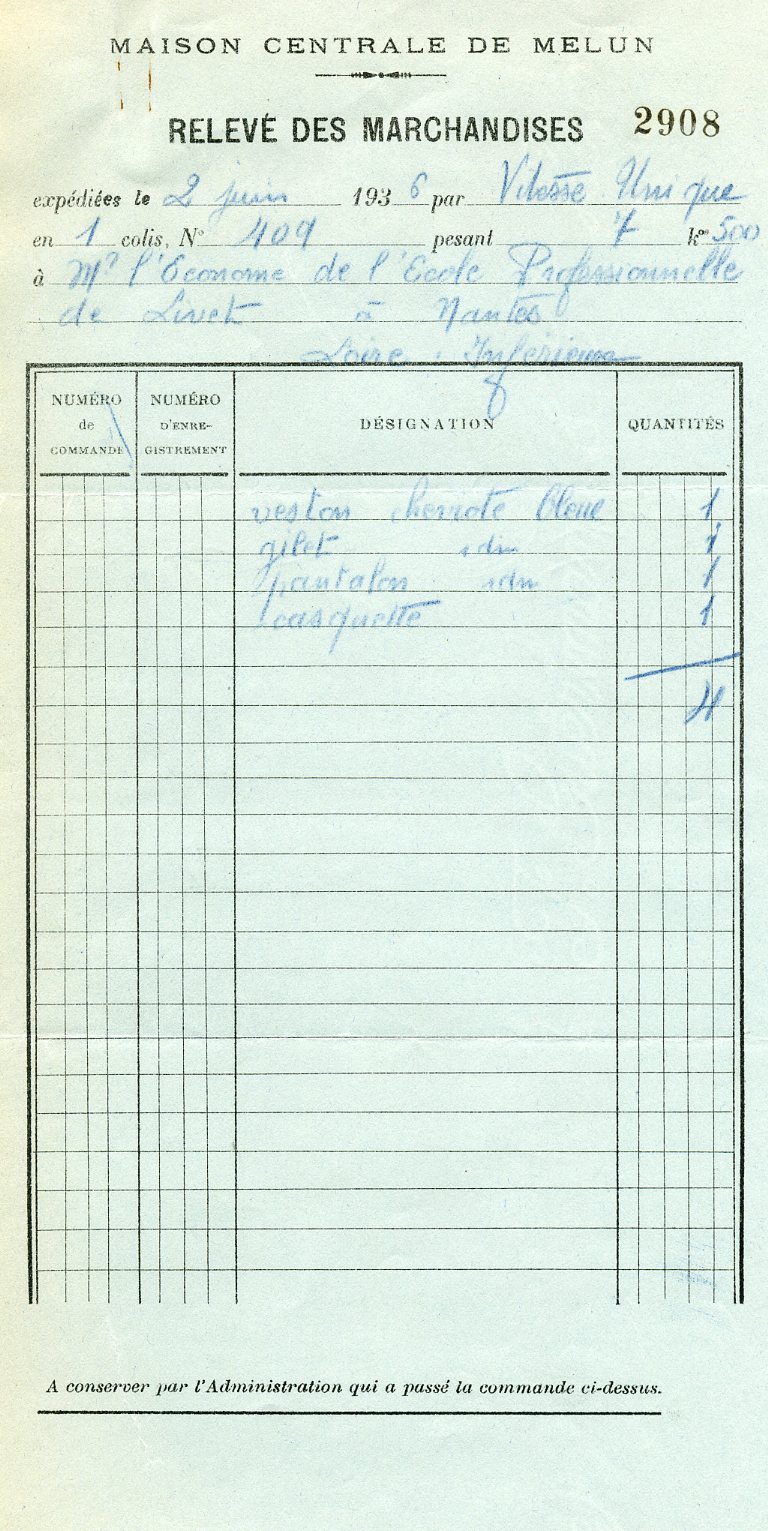 MAISON CENTRALE DE MELUN
RELEVÉ DES MARCHANDISES 2908
expédiées le 2 juin 1936 par Vitesse Unique
en 1 colis, N° 409 pesant 7 kos 500
à Mr l'Econome de l'Ecole Professionnelle
de Livet à Nantes
Loire Inférieure
NUMÉRO de COMMANDE NUMÉRO D'ENRE-GISTREMENT DÉSIGNATION QUANTITÉS
veston cheviote bleue 1
gilet idm 1
pantalon idm 1
casquette 1
4
A conserver par l'Administration qui a passé la commande ci-dessus.